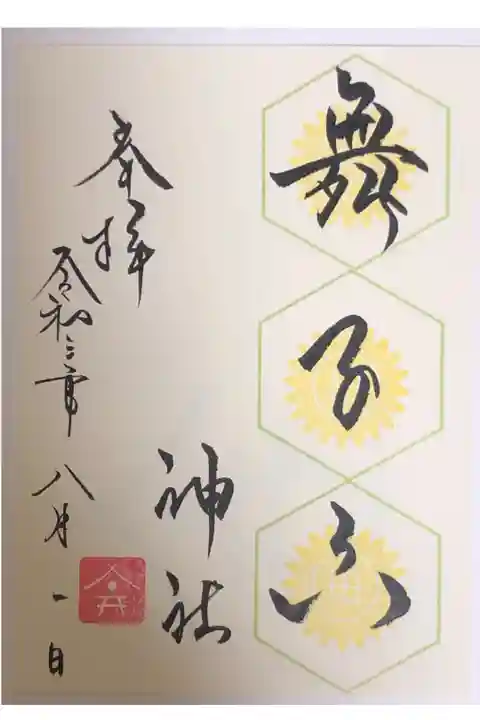 舞子六
神社
奉拝
令和三年 八月一日